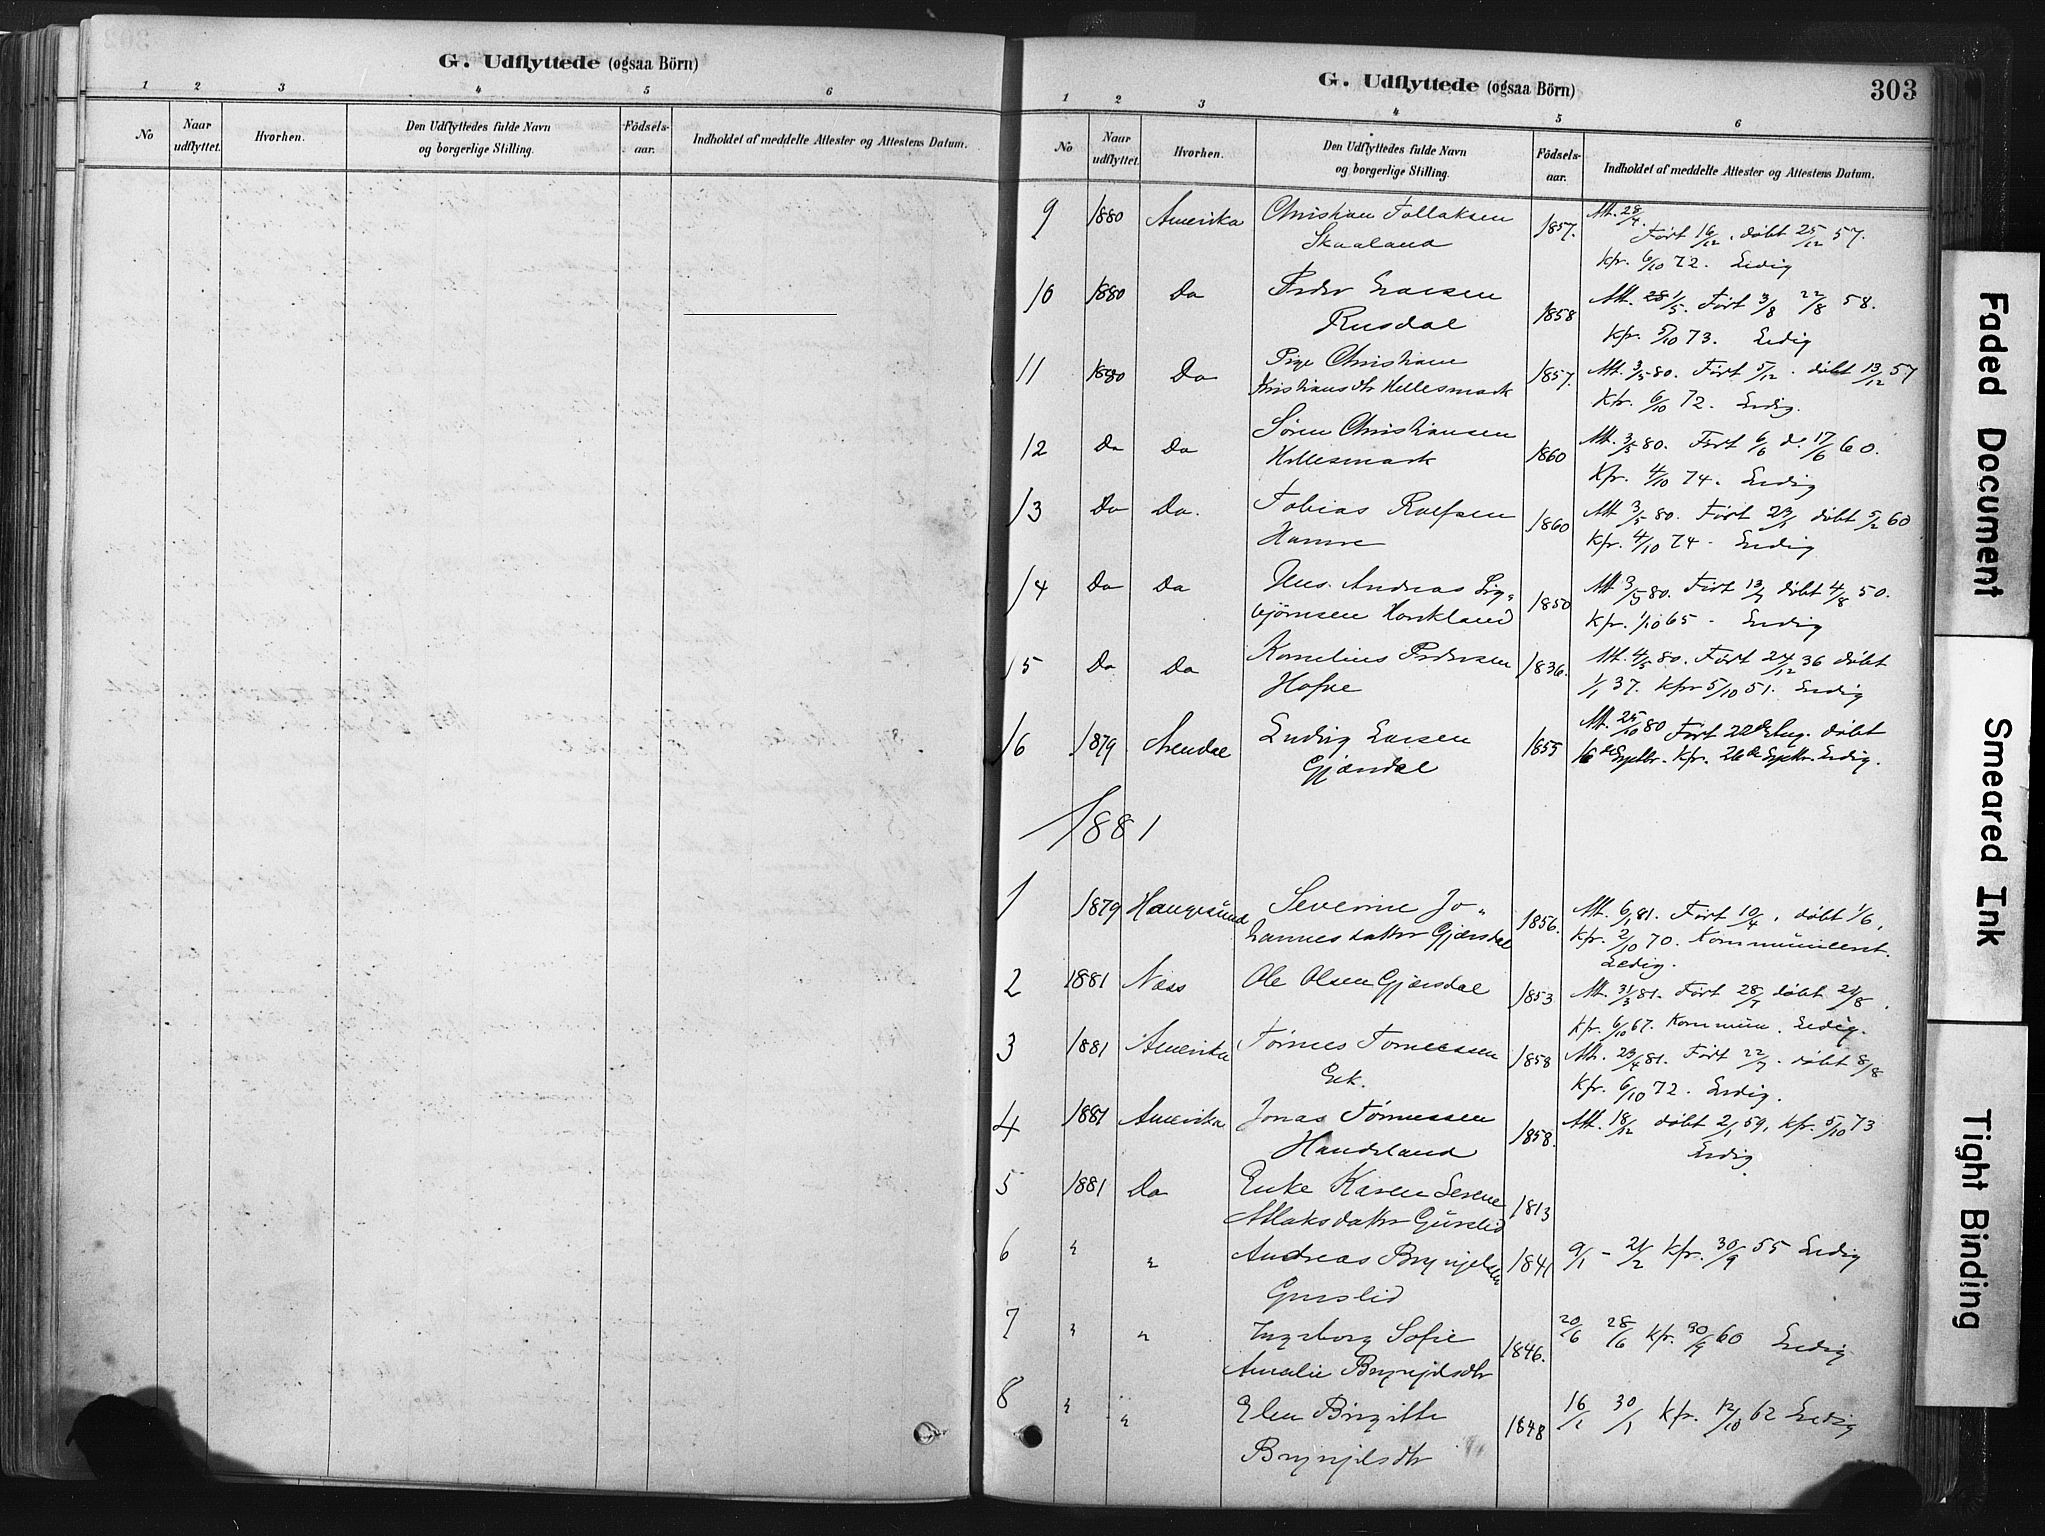 G. Udflyttede (ogsaa Börn)
1 2 3 4 5 6
No Naar udflyttet. Hvorhen. Den Udflyttedes fulde Navn og borgerlige Stilling. Födsels-aar. Indholdet af meddelte Attester og Attestens Datum.
G. Udflyttede (ogsaa Börn) 303
1 2 3 4 5 6
No Naar udflyttet. Hvorhen. Den Udflyttedes fulde Navn og borgerlige Stilling. Födsels-aar. Indholdet af meddelte Attester og Attestens Datum.
9 1880 Amerika Christian Tollaksen 1857. Att. 28/4.
Skaaland Født 16/12. døbt 25/12 57.
Kfr. 6/10 72. Ledig
10 1880 Do Peder Larsen 1858 Att. 1/5. Født 3/8 22/8 58.
Rusdal Kfr. 5/10 73. Ledig
11 1880 Do Pige Christiane 1857. Att. 3/5 80. Født 5/12. døbt 13/12 57
Kristiansdtr Hellesmark Kfr. 6/10 72. Ledig.
12 Do Do Søren Christiansen 1860 Att. 3/5 80. Født 6/6 d. 17/6 60.
Hellesmark Kfr. 4/10 74. Ledig
13 Do Do. Tobias Rolfsen 1860 Att 3/5 80. Født 23/1 døbt 5/2 60
Hamre Kfr. 4/10 74. Ledig
14 Do Do Jens Andreas Sig- 1850 Att 3/5 80. Født 13/7 døbt 4/8 50.
bjørnsen Kfr. 1/10 65. Ledig
15 Do Do Kornelius Pedersen 1836. Att. 4/5 80. Født 24/12 36 døbt
1/1 37. Kfr 5/10 51. Ledig
16 1879 Arendal Ludvig Larsen 1855 Att. 25/10 80 Født 22de Aug. døbt
16de Septbr. Kfr. 26de Septbr. Ledig.
1881
1 1879 Haugesund Severine Jo- 1856. Att. 6/1 81. Født 10/4, døbt 1/6,
hannesdatter Gjærsdal Kfr. 2/10 70. Kommuniceret.
Ledig.
2 1881 Næss Ole Olsen Gjærsdal 1853 Att. 31/3 81. Født 28/7 døbt 21/8.
Kfr. 6/10 67. Kommun. Ledig.
3 1881 Amerika Tørnes Tørnessen 1858 Att. 23/4 81. Født 22/7. døbt 8/8
Eek. Kfr. 6/10 72. Ledig.
4 1881 Amerika Jonas Tørnessen 1858. Att. 18/12 døbt 2/1 59, Kfr. 5/10 73
Handeland Ledig.
5 1881 Do Enke Karen Serene 1813
Atlaksdatter Gursled
6 " " Andreas Brynjelsen 1841 9/1 - 21/2 Kfr. 30/9 55 Ledig
Gurslid
7 " " Ingeborg Sofie 1846. 20/6 28/6 Kfr. 30/9 60 Ledig
Amalie Brynjelsdtr
8 " " Elen Birgitte 1848 16/1 30/1 Kfr. 12/10 62 Ledig
Brynjelsdtr
Faded Document
Smeared Ink
Tight Binding